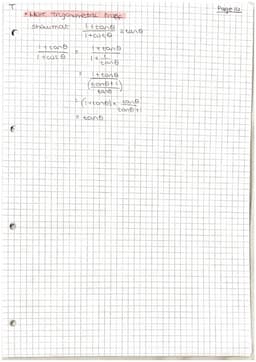 Page 10
• More Trigonometric Proof
Show that (1+tanθ)/(1+cotθ) = tanθ
(1+tanθ)/(1+cotθ) = (1+tanθ)/(1+1/tanθ)
= (1+tanθ)/((tanθ+1)/tanθ)
= (1+tanθ) × tanθ/(tanθ+1)
= tanθ